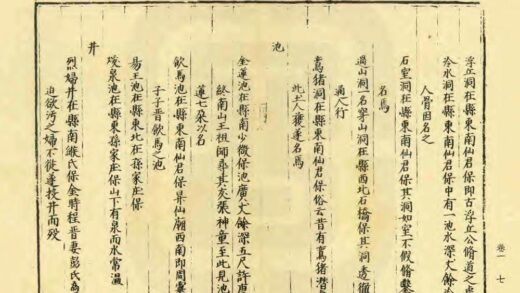 浮丘洞在縣東南仙君保即古浮丘公脩道之
冷水洞在縣東南仙君保中有一池水深丈餘
人骨因名之
石室洞在縣東南仙君保其洞如室不假脩鑿
名焉
過山洞一名穿山洞在縣西北石橋保其洞透徹
過人行
鸞猪洞在縣東南仙君保俗云昔有鸞猪潛
此土人獲遂名焉
池
金蓮池在縣南少微保池廣丈餘深五尺許
終南山王祖師
張神童至此見池
蓮七朵以名
飲馬池在縣東南仙君保昇仙廟西南即周靈
子子晉飲馬之池
易王池在縣東北在孫家庄保
煖泉池在縣東孫家庄保山下有泉而水常温
井
烈婦井在縣南緱氏保金時程晋妻彭氏為
迫欲污之婦不從遂投井而殁
卷一
七